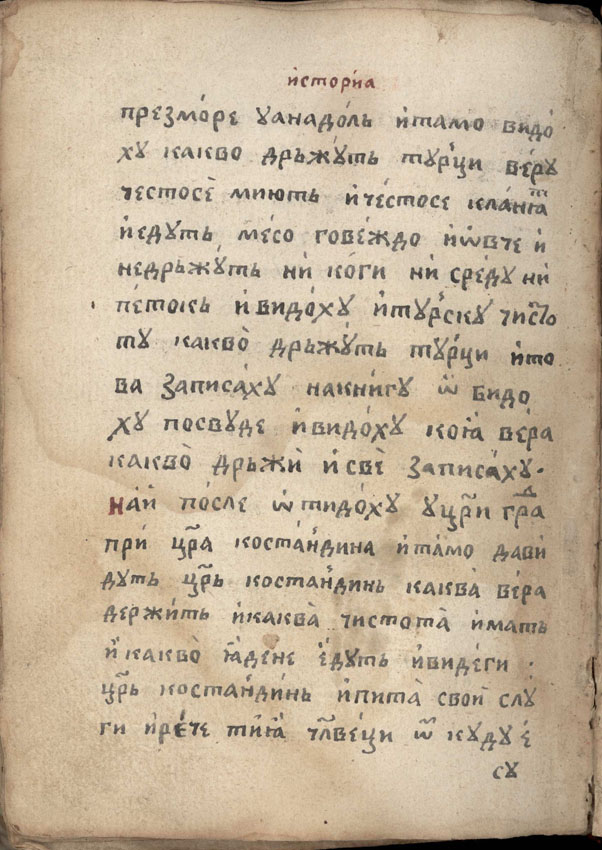 і҆сторіꙗ
презмо́ре ꙋанадо́ль и҆тамо видо́
хꙋ какво дрьжꙋть тꙋ́рци ве́рꙋ
честосѐ миють и҆че́стосе кла́нꙗⷮ
и҆едꙋ́ть месо гове́ждо и҆ѡ҆вче и҆
недрьжꙋ́ть нѝ ко́ги нѝ сре́дꙋ ни
пе́токь и҆видо́хꙋ и҆тꙋ́рскꙋ чисⷭ҇то
тꙋ какво̀ дрьжꙋ́ть тꙋ́рци и҆то
ва записа́хꙋ накни́гꙋ ѿ бидо
хꙋ посвꙋде и҆видо́хꙋ коꙗ̀ ве́ра
какво̀ дрьжѝ и҆све̇ записа́хꙋ·
на́й по́сле ѿтидо́хꙋ ꙋцр҃и граⷣ
прѝ цр҃а коста́ндина и҆та́мо дави
дꙋть цр҃ь костанди́нь каква̀ ве́ра
держи́ть и҆каква̀ чистота̀ и҆мать
и҆какво̀ ꙗ҆дене е҆дꙋть и҆виде́ги ·
цр҃ь костанди́нь и҆пита̀ свой слꙋ
ги и҆ре́че ти́ꙗ чл҃ве́ци ѿ кꙋдꙋ е҆
сꙋ